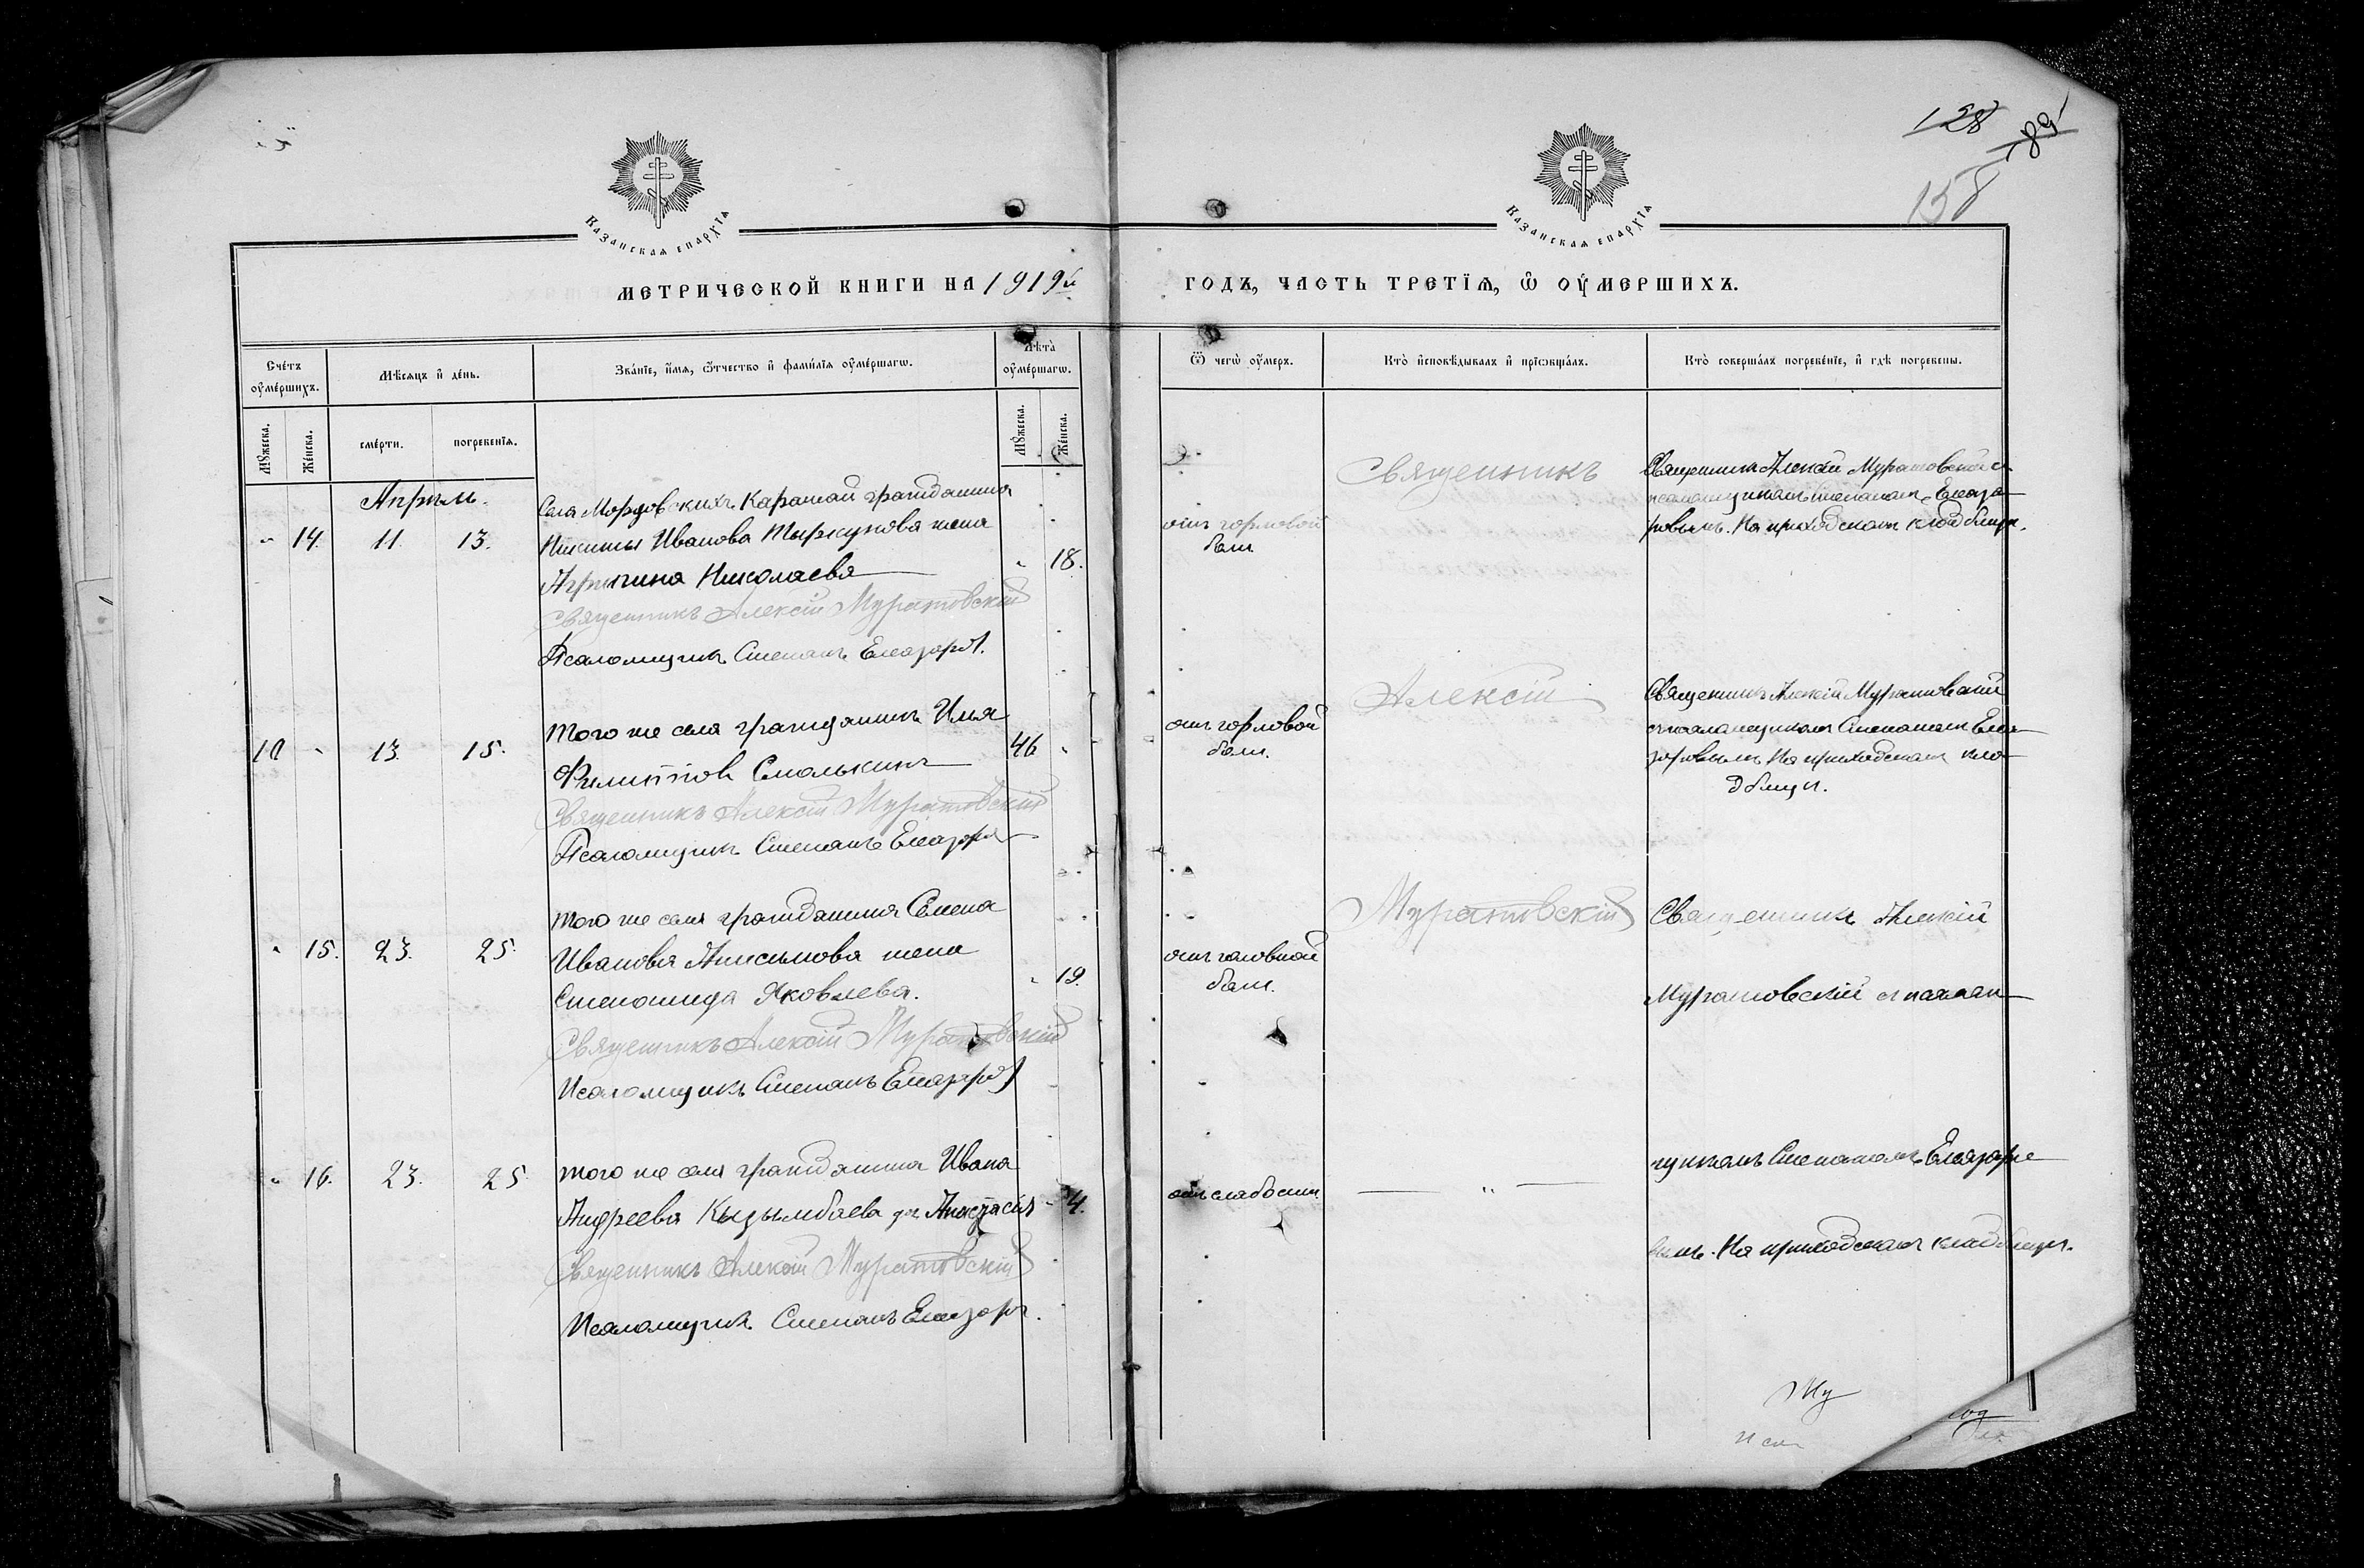 128
89
158
КАЗАНСКАѦ ЕПАРХІѦ
КАЗАНСКАѦ ЕПАРХІѦ
МЕТРИЧЕСКОЙ КНИГИ НА 1919й
ГОДЪ, ЧАСТЬ ТРЕТІѦ, Ѽ ОУМЕРШИХЪ.
Счетъ оумершихъ.
Мѣсяцъ и день.
Званіе, имя, отчество и фамилія оумершагѡ.
Лѣта оумершагѡ.
Ѿ чегѡ оумеръ.
Кто исповѣдывалъ и пріѡбщалъ.
Кто совершалъ погребеніе, и гдѣ погребены.
Мꙋжеска.
Женска.
смерти.
погребенія.
Мꙋжеска.
Женска.
Апрѣль.
Села Мордовскихъ Каратай гражданина
" 14. 11. 13. Никиты Иванова Тыркунова жена
Агрипина Николаева " 18.
Священникъ Алексій Муратовскій
Псаломщикъ Степанъ Елеазаров.
отъ горловой
боли
Священникъ
Священникъ Алексій Муратовскій съ
псаломщикомъ Степаномъ Елеаза-
ровымъ. На приходскомъ кладбищѣ.
того же села гражданинъ Илья
10 " 13. 15. Филиппов Смолькинъ 46 "
Священникъ Алексій Муратовскій
Псаломщикъ Степанъ Елеазаров
отъ горловой
боли.
Алексій
Священникъ Алексій Муратовскій
съ псаломщикомъ Степаномъ Елеа-
заровымъ На приходскомъ кла-
дбищѣ.
того же села гражданина Семена
" 15. 23. 25. Иванова Анисимова жена
Степанида Яковлева. " 19.
Священникъ Алексій Муратовскій
Псаломщикъ Степанъ Елеазаров
отъ головной
боли.
Муратовскій
Священникъ Алексій
Муратовскій съ псалом-
" 16. 23. 25. того же села гражданина Ивана
Андреева Кызылбаева дч. Анастасія " 4.
Священникъ Алексій Муратовскій
Псаломщикъ Степанъ Елеазаров.
отъ слабости.
— " —
щикомъ Степаномъ Елеазаро-
вымъ. На приходскомъ кладбищѣ.
Му